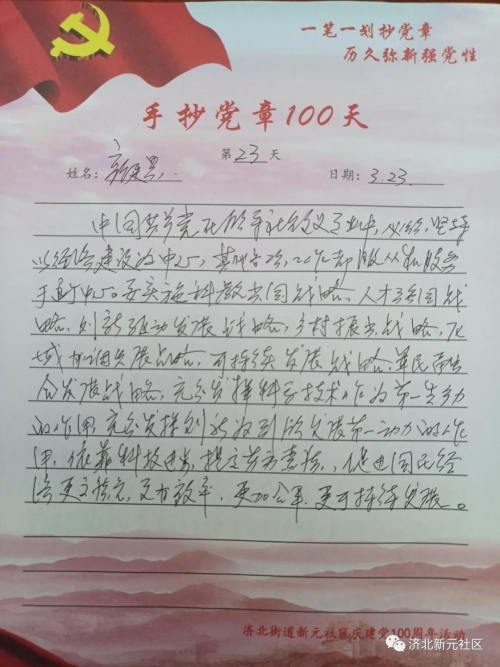 一笔一划抄党章
历久弥新强党性
手抄党章100天
第23天
姓名: 日期:3.23.
中国共产党在领导社会主义事业中,必须坚持
以经济建设为中心,其他各项工作都服从和服务
于这个中心。要实施科教兴国战略、人才强国战
略、创新驱动发展战略、乡村振兴战略、区
域协调发展战略、可持续发展战略、军民融
合发展战略,充分发挥科学技术作为第一生产力
的作用,充分发挥创新为引领发展第一动力的作
用,依靠科技进步,提高劳动者素质,促进国民经
济更高质量、更有效率、更加公平、更可持续发展。
济北街道新元社区庆建党100周年活动
济北新元社区